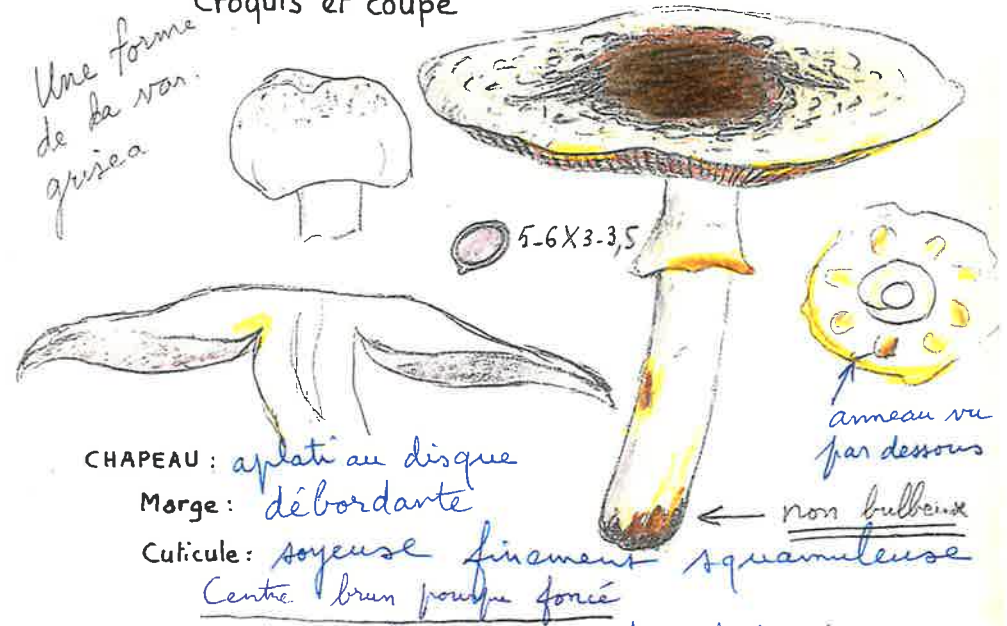 Croquis et coupe
Une forme
de la var.
grisea
5-6X3-3,5
anneau vu
par dessous
CHAPEAU : aplati au disque
Marge : débordante
non bulbeux
Cuticule : soyeuse finement squamuleuse
Centre brun pourpre foncé